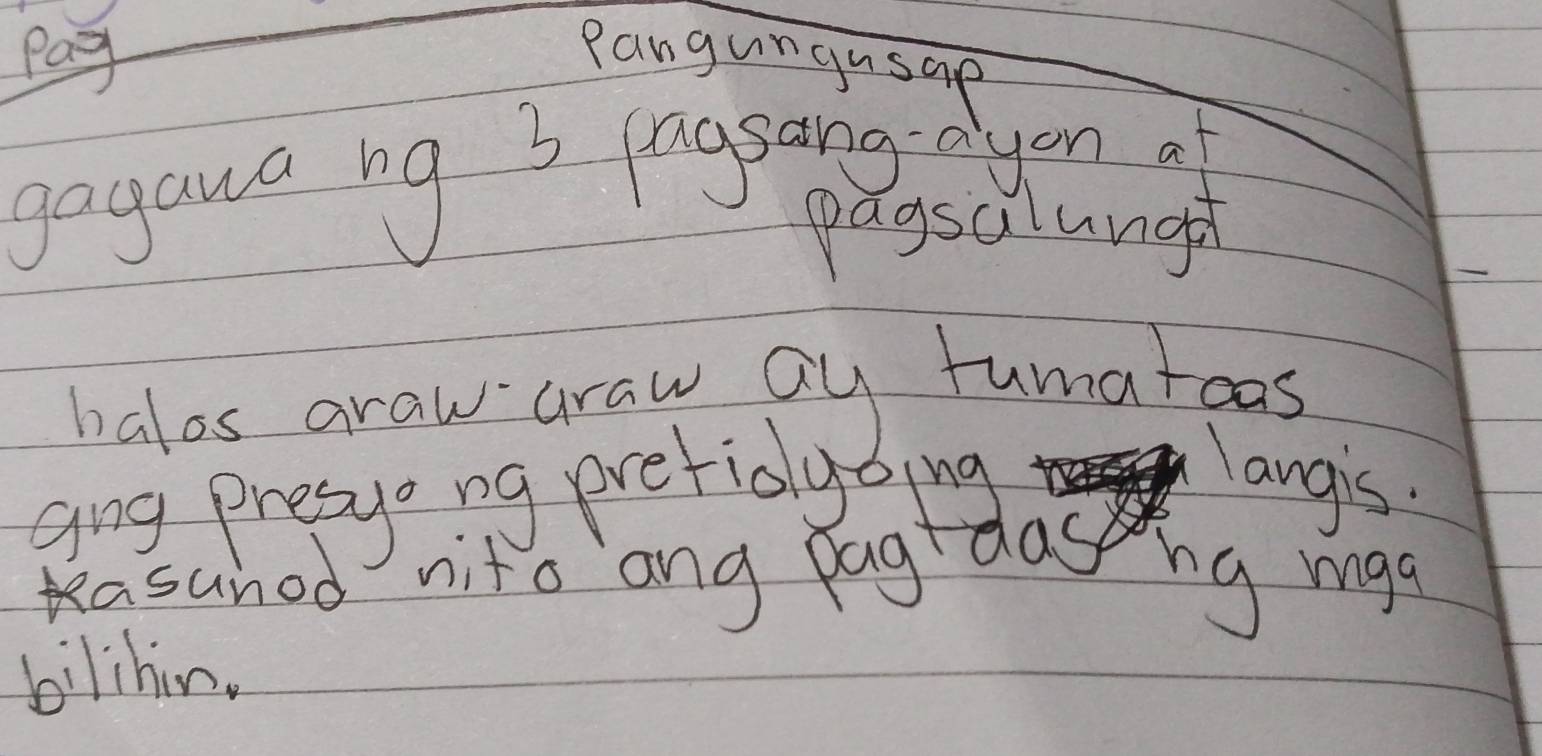 Pag
Pangungusap
gagawa ng 3 pagsang-ayon at
pagsalungat
halos araw-araw ay tumataas
ang presyo ng pretiolyoing langis.
kasunod nito ang pagtaas ng mga
bilihin.